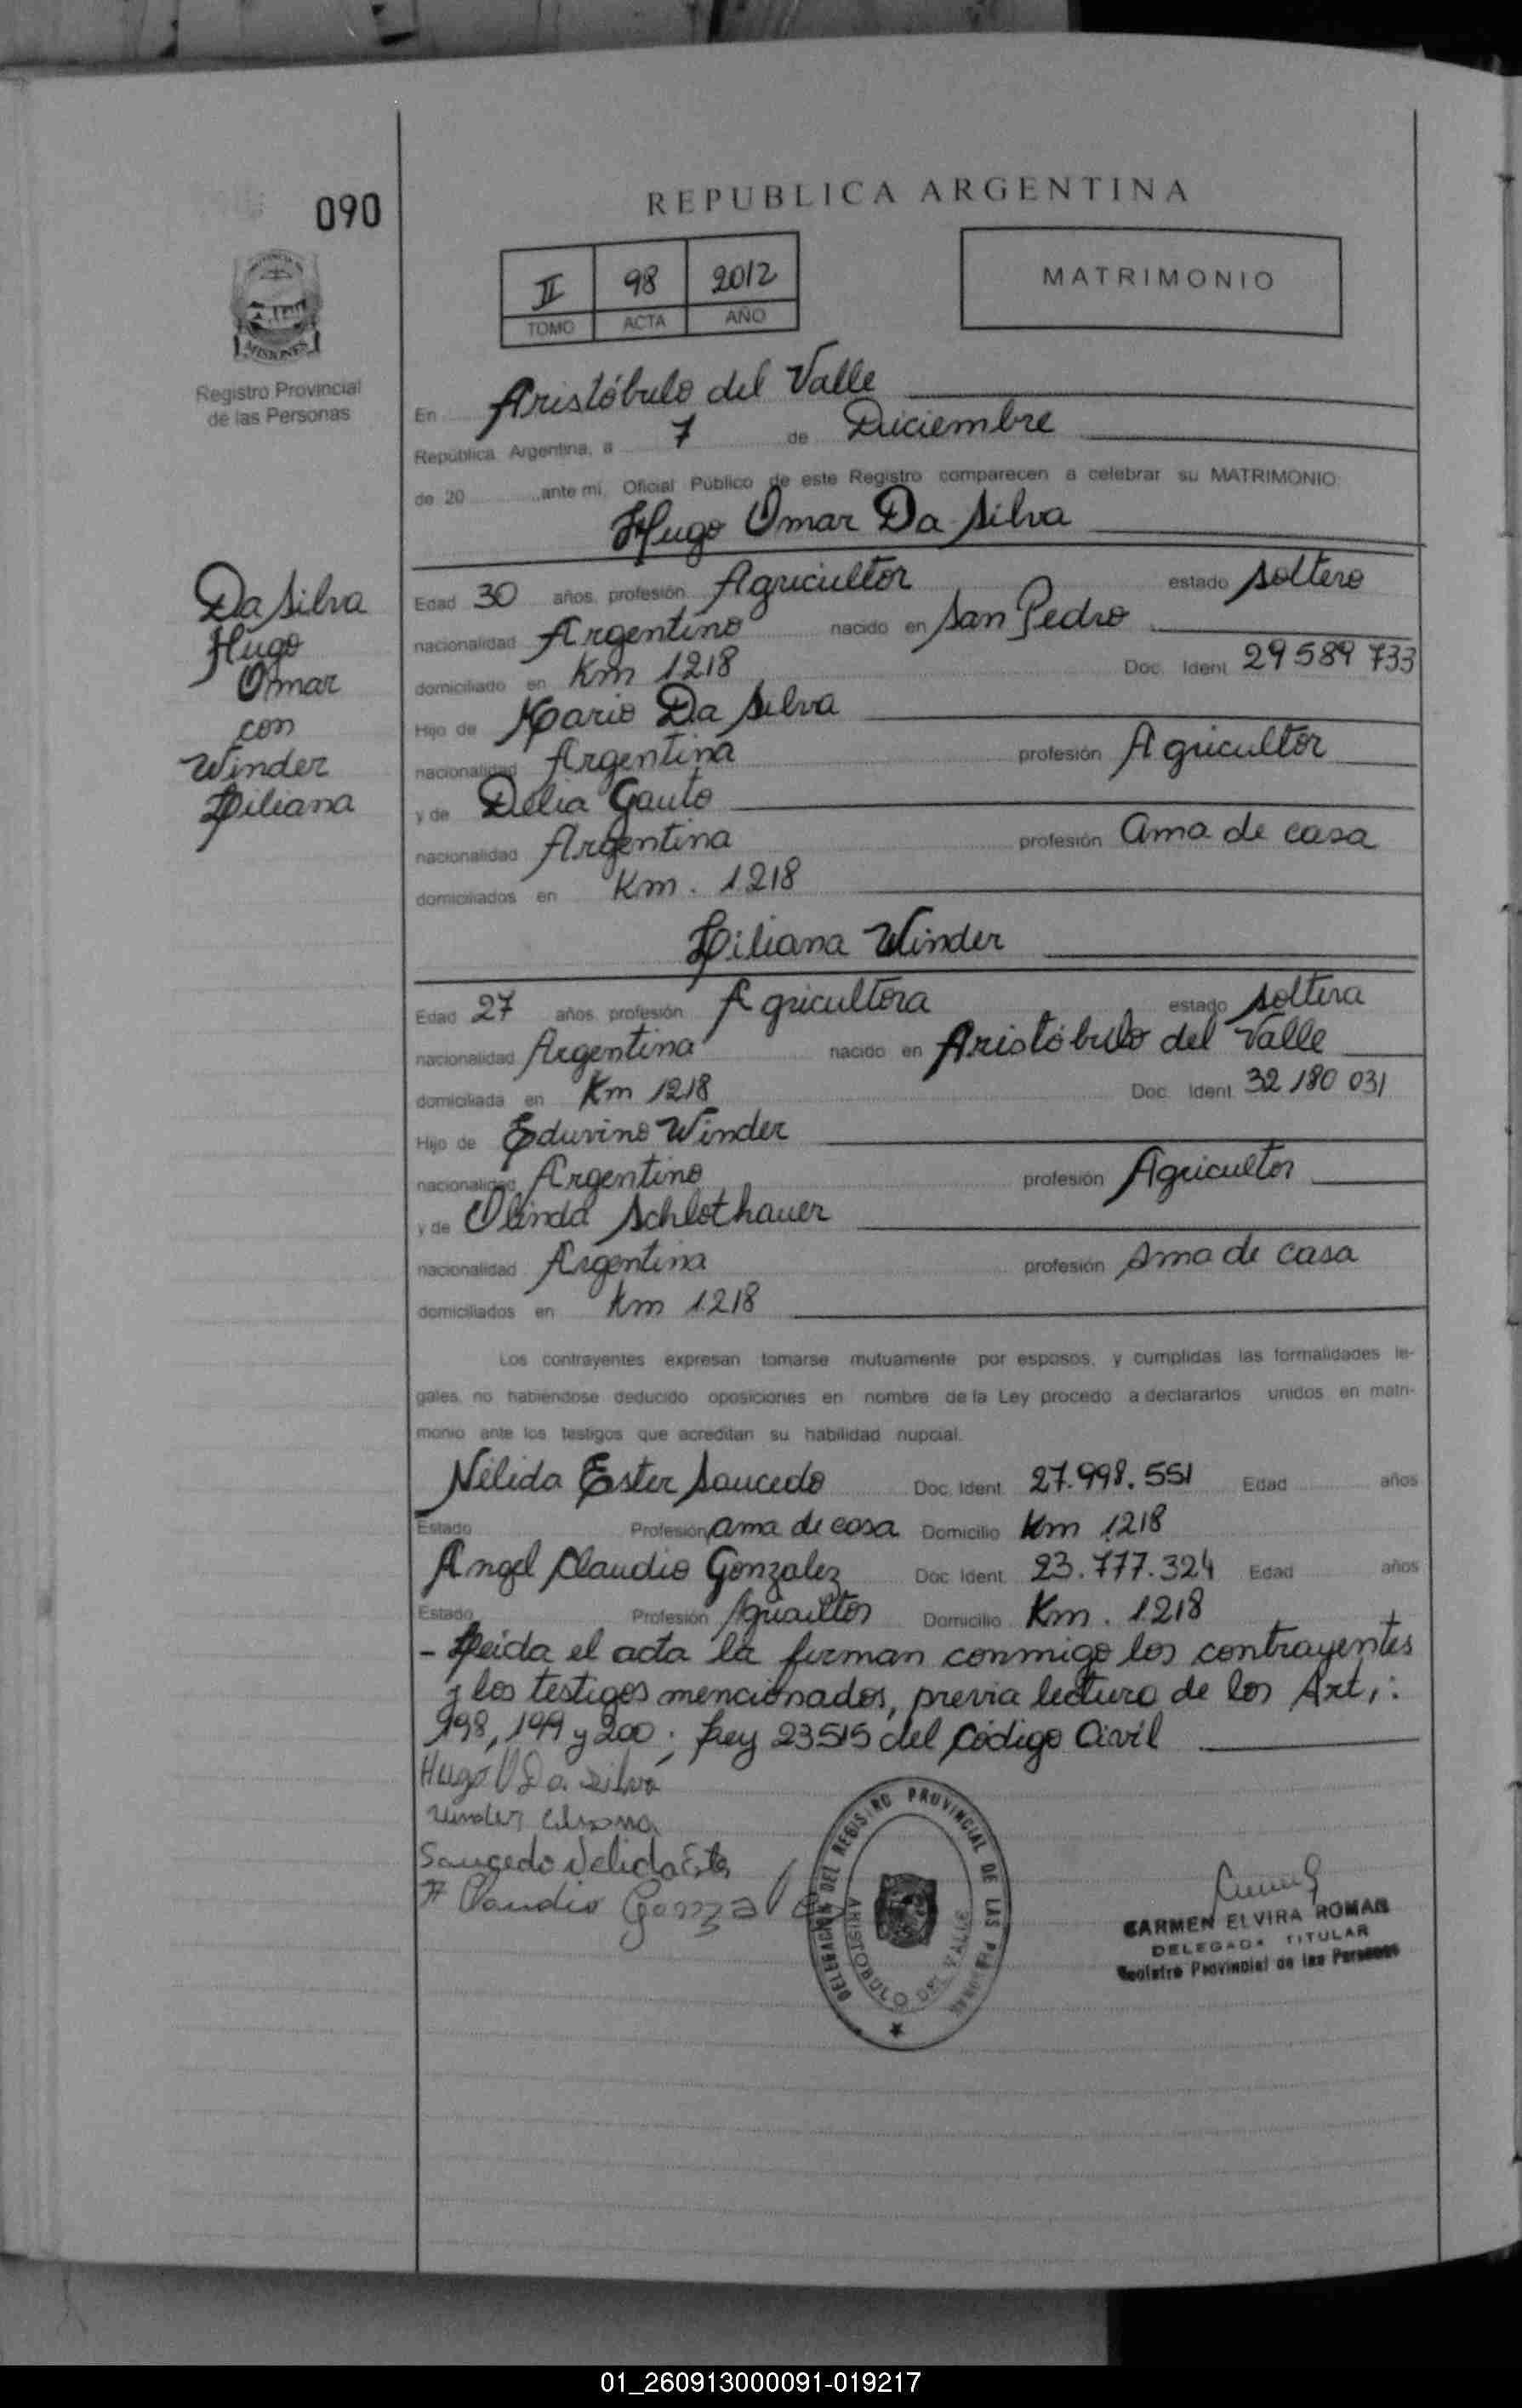 090
REPUBLICA ARGENTINA
II 98 2012
TOMO ACTA AÑO
MATRIMONIO
MISIONES
Registro Provincial
de las Personas
En Aristóbulo del Valle
República Argentina, a 7 de Diciembre
de 20 ante mí, Oficial Público de este Registro comparecen a celebrar su MATRIMONIO:
Hugo Omar Da Silva
Da Silva
Hugo
Omar
con
Winder
Liliana
Edad 30 años, profesión Agricultor estado soltero
nacionalidad Argentino nacido en San Pedro
domiciliado en Km 1218 Doc. Ident. 29589733
Hijo de Mario Da Silva
nacionalidad Argentina profesión Agricultor
y de Delia Gauto
nacionalidad Argentina profesión Ama de casa
domiciliados en Km. 1218
Liliana Winder
Edad 27 años, profesión Agricultora estado soltera
nacionalidad Argentina nacido en Aristóbulo del Valle
domiciliada en Km 1218 Doc. Ident. 32 180 031
Hijo de Eduvino Winder
nacionalidad Argentino profesión Agricultor
y de Olinda Schlothauer
nacionalidad Argentina profesión Ama de casa
domiciliados en Km 1218
Los contrayentes expresan tomarse mutuamente por esposos, y cumplidas las formalidades le-
gales, no habiéndose deducido oposiciones en nombre de la Ley procedo a declararlos unidos en matri-
monio ante los testigos que acreditan su habilidad nupcial.
Nélida Ester Saucedo Doc. Ident. 27.998.551 Edad años
Estado Profesión ama de casa Domicilio Km 1218
Angel Claudio Gonzalez Doc. Ident. 23.777.324 Edad años
Estado Profesión Agricultor Domicilio Km. 1218
- Leída el acta la firman conmigo los contrayentes
y los testigos mencionados, previa lectura de los Art,:
198, 199 y 200; Ley 23515 del Código Civil
Hugo O Da Silva
Winder Liliana
Saucedo Nelida Ester
A Claudio Gonzalez
DELEGACION DEL REGISTRO PROVINCIAL DE LAS PERSONAS
ARISTOBULO DEL VALLE
CARMEN ELVIRA ROMAN
DELEGADA TITULAR
Registro Provincial de las Personas
01_260913000091-019217